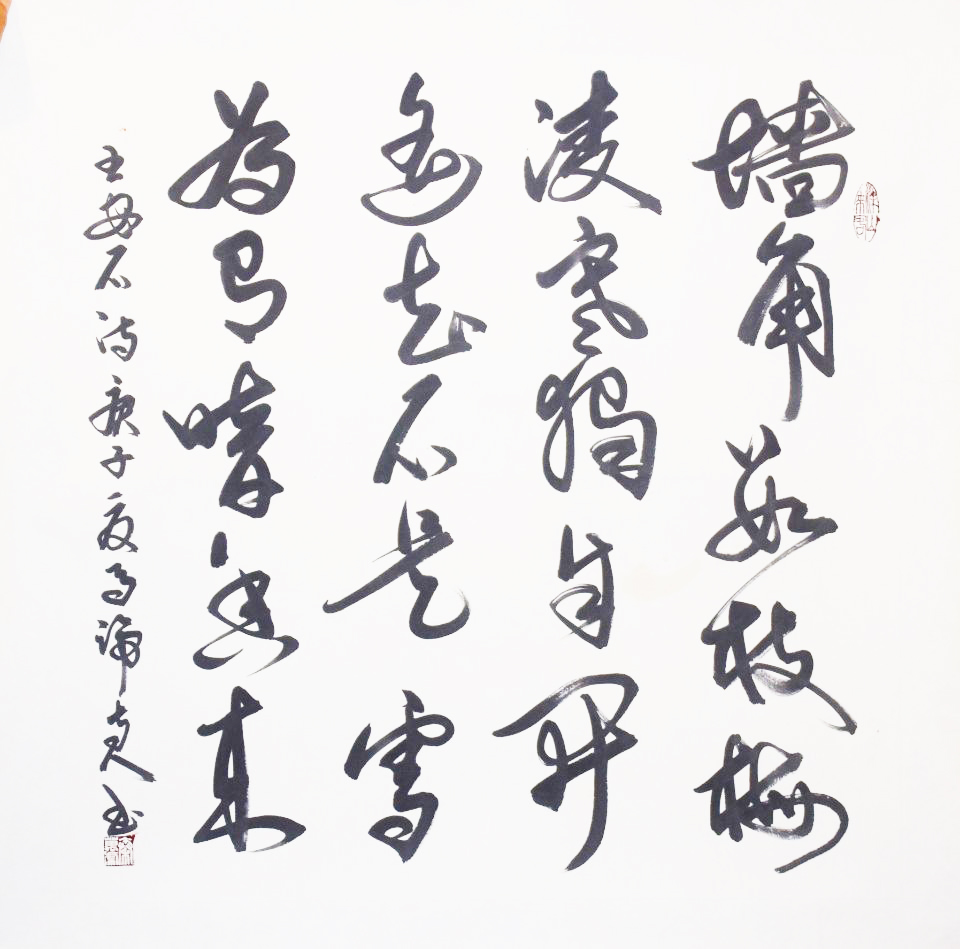 墙角数枝梅
凌寒独自开
遥知不是雪
为有暗香来
王安石诗庚子夏马 书